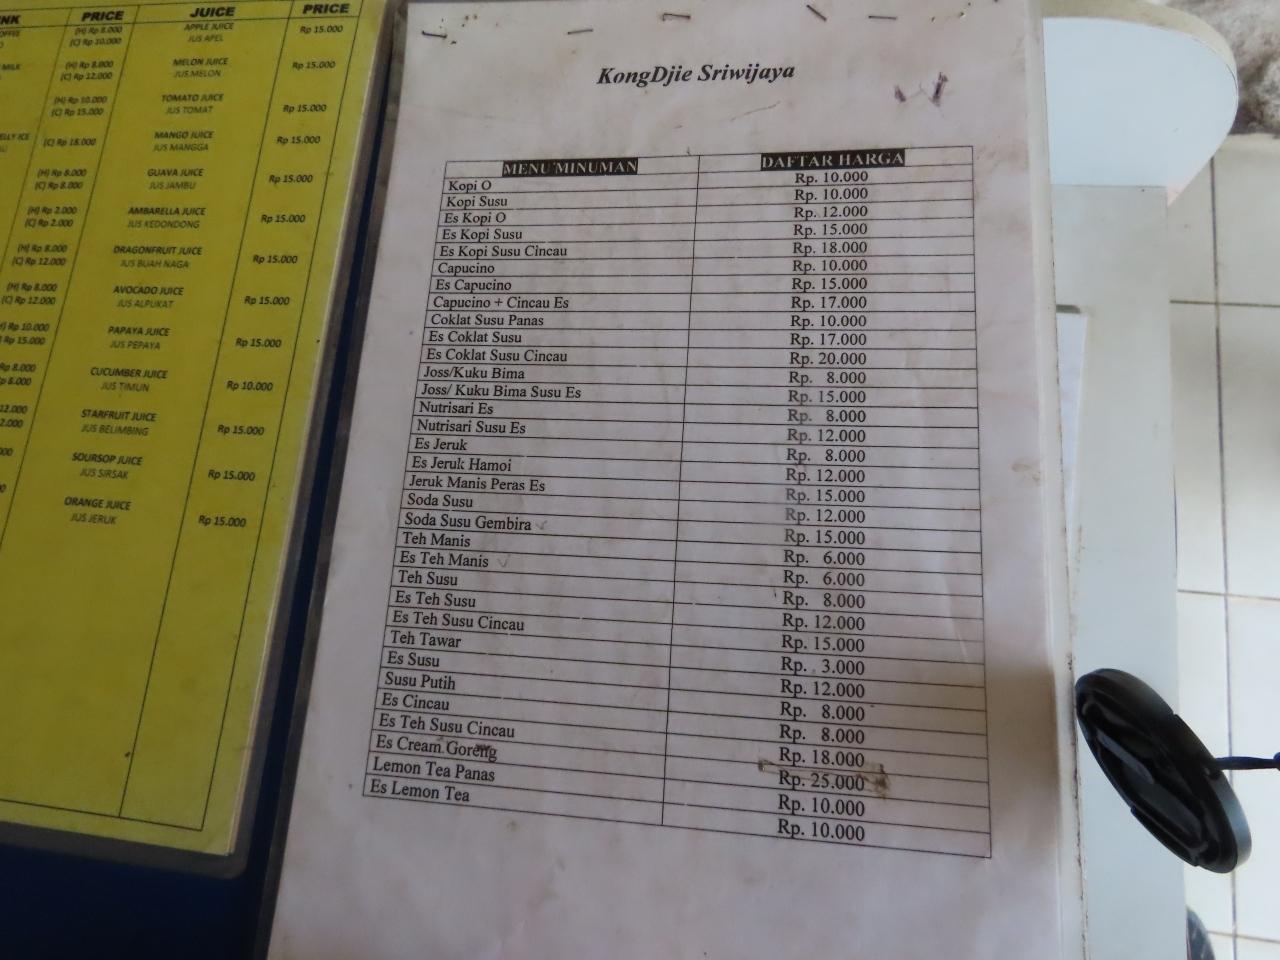 NK PRICE JUICE PRICE
(H) Rp 8.000 APPLE JUICE Rp 15.000
(C) Rp 10.000 JUS APEL
MILK (H) Rp 8.000 MELON JUICE Rp 15.000
(C) Rp 12.000 JUS MELON
(H) Rp 10.000 TOMATO JUICE Rp 15.000
(C) Rp 15.000 JUS TOMAT
ELLY ICE (C) Rp 18.000 MANGO JUICE Rp 15.000
JUS MANGGA
(H) Rp 8.000 GUAVA JUICE Rp 15.000
(C) Rp 8.000 JUS JAMBU
(H) Rp 2.000 AMBARELLA JUICE Rp 15.000
(C) Rp 2.000 JUS KEDONDONG
(H) Rp 8.000 DRAGONFRUIT JUICE Rp 15.000
(C) Rp 12.000 JUS BUAH NAGA
(H) Rp 8.000 AVOCADO JUICE Rp 15.000
(C) Rp 12.000 JUS ALPUKAT
Rp 10.000 PAPAYA JUICE Rp 15.000
Rp 15.000 JUS PEPAYA
Rp 8.000 CUCUMBER JUICE Rp 10.000
Rp 8.000 JUS TIMUN
12.000 STARFRUIT JUICE Rp 15.000
2.000 JUS BELIMBING
SOURSOP JUICE Rp 15.000
JUS SIRSAK
ORANGE JUICE Rp 15.000
JUS JERUK
KongDjie Sriwijaya
MENU MINUMAN DAFTAR HARGA
Kopi O Rp. 10.000
Kopi Susu Rp. 10.000
Es Kopi O Rp. 12.000
Es Kopi Susu Rp. 15.000
Es Kopi Susu Cincau Rp. 18.000
Capucino Rp. 10.000
Es Capucino Rp. 15.000
Capucino + Cincau Es Rp. 17.000
Coklat Susu Panas Rp. 10.000
Es Coklat Susu Rp. 17.000
Es Coklat Susu Cincau Rp. 20.000
Joss/Kuku Bima Rp. 8.000
Joss/ Kuku Bima Susu Es Rp. 15.000
Nutrisari Es Rp. 8.000
Nutrisari Susu Es Rp. 12.000
Es Jeruk Rp. 8.000
Es Jeruk Hamoi Rp. 12.000
Jeruk Manis Peras Es Rp. 15.000
Soda Susu Rp. 12.000
Soda Susu Gembira Rp. 15.000
Teh Manis Rp. 6.000
Es Teh Manis Rp. 6.000
Teh Susu Rp. 8.000
Es Teh Susu Rp. 12.000
Es Teh Susu Cincau Rp. 15.000
Teh Tawar Rp. 3.000
Es Susu Rp. 12.000
Susu Putih Rp. 8.000
Es Cincau Rp. 8.000
Es Teh Susu Cincau Rp. 18.000
Es Cream Goreng Rp. 25.000
Lemon Tea Panas Rp. 10.000
Es Lemon Tea Rp. 10.000